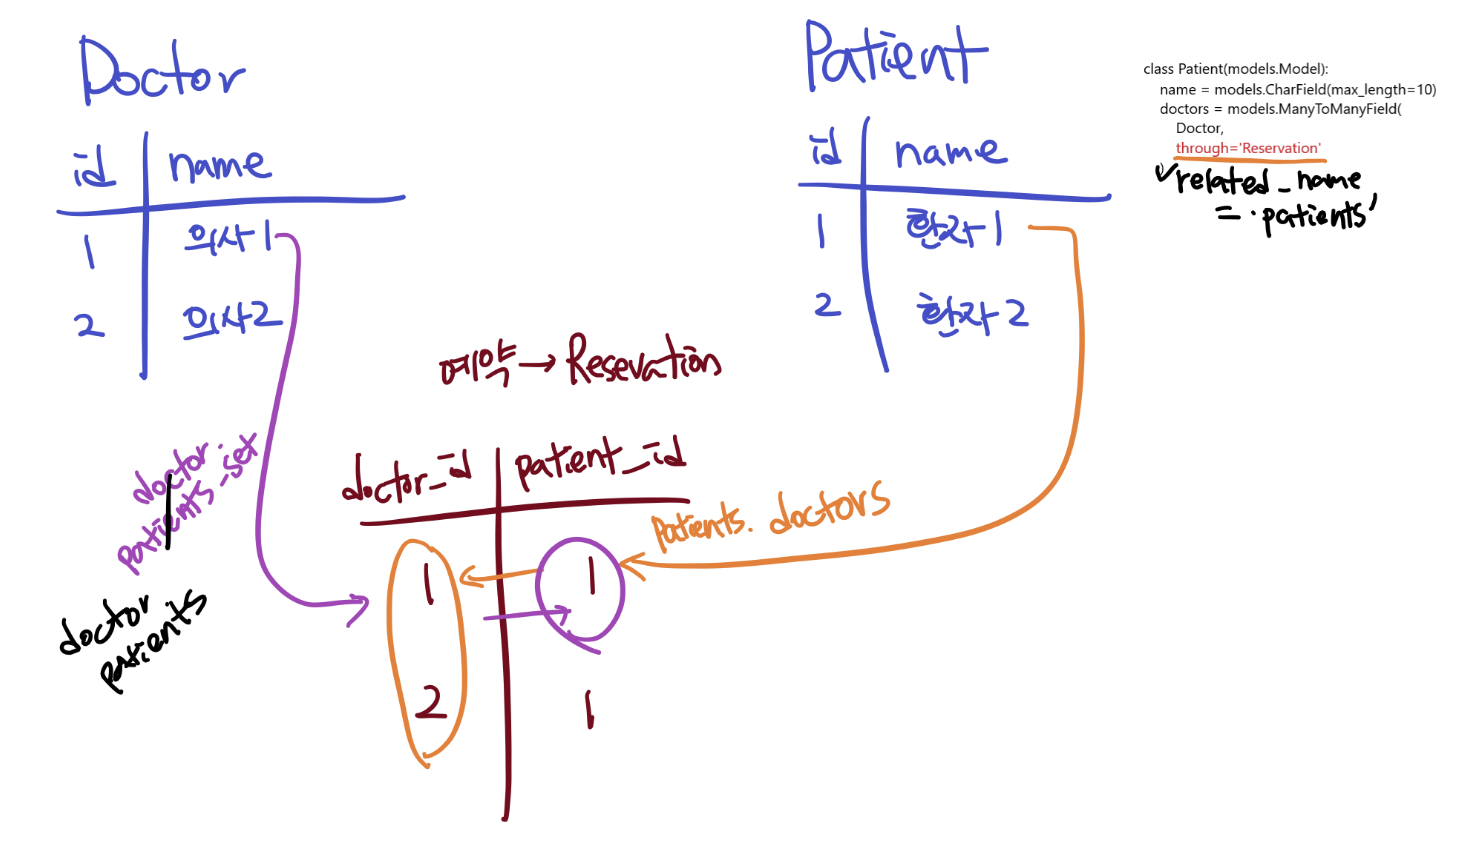 Doctor
id name
1 의사1
2 의사2
Patient
id name
1 환자1
2 환자2
class Patient(models.Model):
name = models.CharField(max_length=10)
doctors = models.ManyToManyField(
Doctor,
through='Reservation'
related_name
= 'patients'
예약 → Resevation
doctor_id patient_id
1 1
2 1
patients. doctors
doctor.
patients_set
doctor
patients